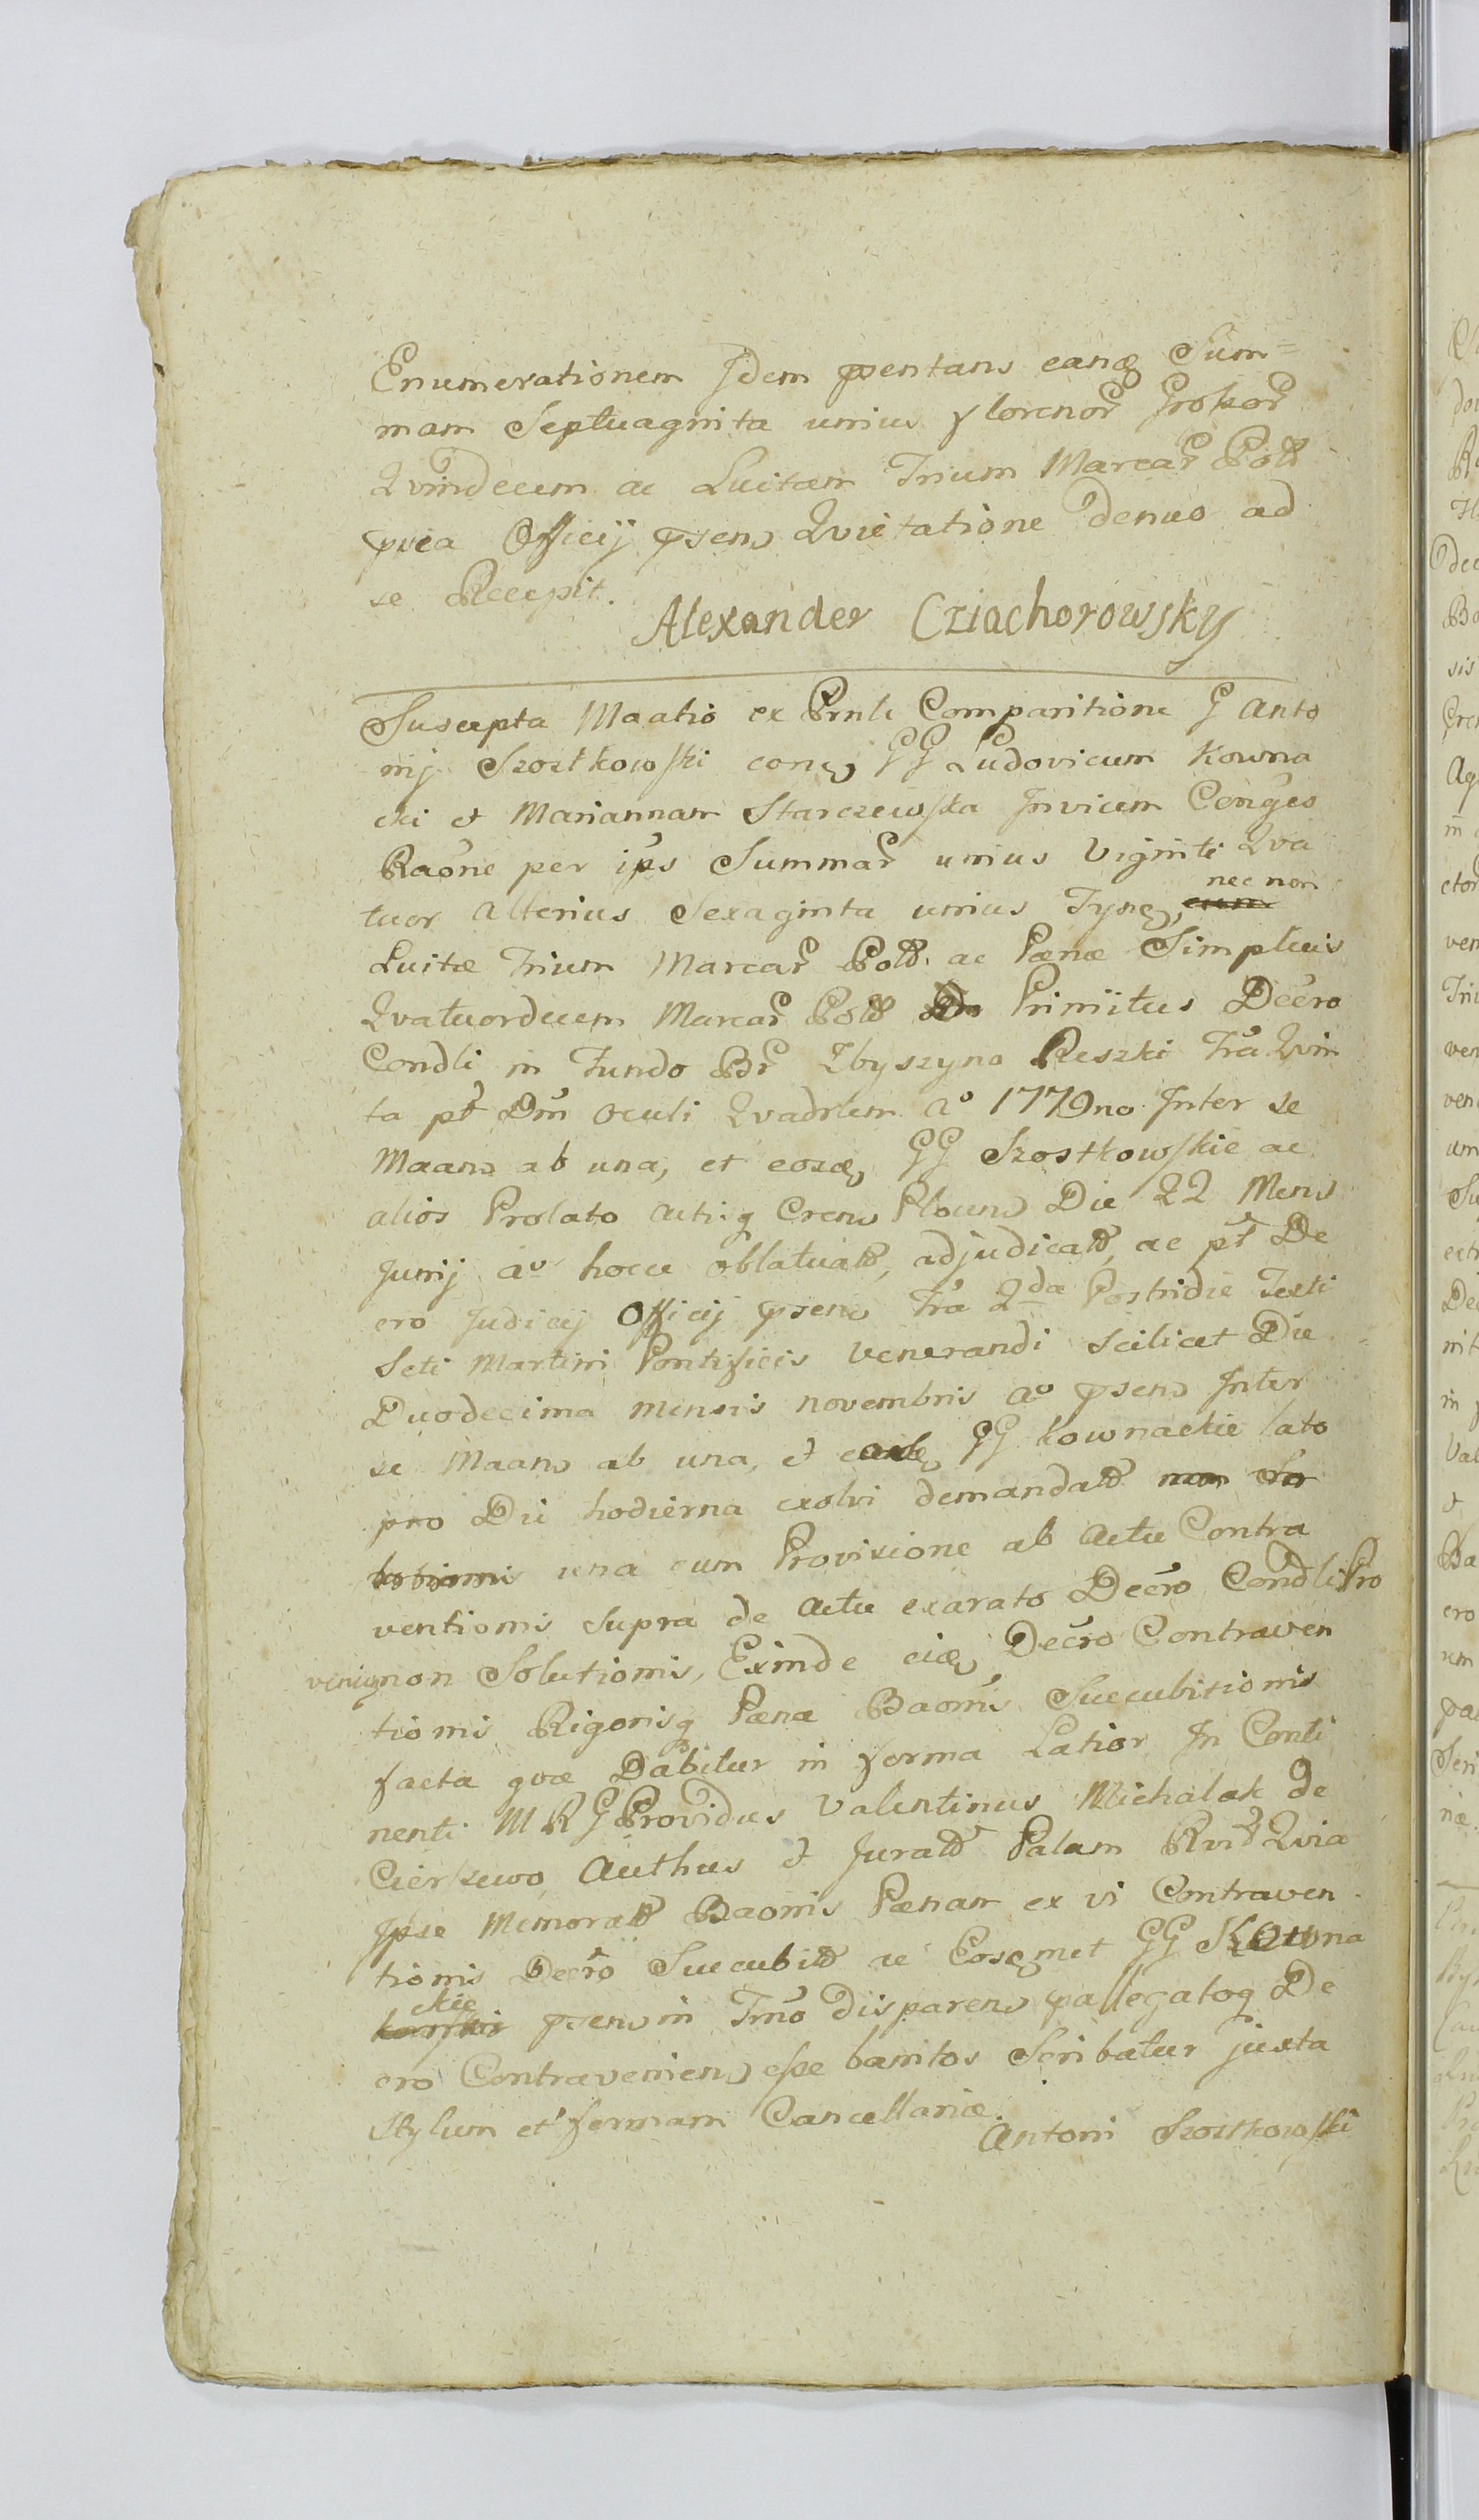 Enumerationem Idem psentans eanq Sum=
mam Septuaginta unius florenor Groszor
Qvindecem ac Luitam Trium Marcar Poll
pvia Officij psens Qvietatione denuo ad
se Recepit.
Alexander Cziachorowsky
Suscepta Maatio ex Prnli Comparitione G Anto
nij Szostkowski conq GG Ludovicum Kowna
cki et Mariannam Starczewska Invicem Conges
Raone per ips Summar unius Viginti Qva
tuor Alterius Sexaginta unius Tynq, nec non
Luitæ Trium Marcar Poll. ac Pænæ Simplicis
Qvatuordecem Marcar Poll Primitus Decro
Condli in Fundo Br Zbyszyno Reszki Fra Qvin
ta pt Dm Oculi Qvadrlem Ao 1779no Inter se
Maans ab una, et eosq GG Szostkowskie ac
alios Prolato Actisq Crens Plocens Die 22 Mens
Junij ao hocce oblatuatt, adjudicatt, ac pt De
cro Judicij Officij psens Fra 2da Postridie Festi
Scti Martini Pontificis Venerandi scilicet Die
Duodecima mensis novembris ao psens Inter
se Maans ab una, et eosq GG Kownackie lato
pro Die hodierna exolvi demandatt
una cum Provisione ab Actu Contra
ventionis supra de Actu exarato Decro Condli Pro
venienon Solutionis, Exinde eisq Decro Contraven
tionis Rigorisq Pæna Baonis Succubitionis
facta qvæ Dabitur in forma Latior In Conti
nenti MRG Providus Valentinus Michalak de
Cierszewo Authus et Juratt Palam Rvit Qvia
Ipse Memoratt Baonis Pænam ex vi Contraven
tionis Decro Succubitt ac Eosqmet GG Kowna
ckie psens in Tmo disparens pallegatoq De
cro Contraveniens esse banitos Scribatur juxta
Stylum et formam Cancellariæ.
Antoni Szostkowski